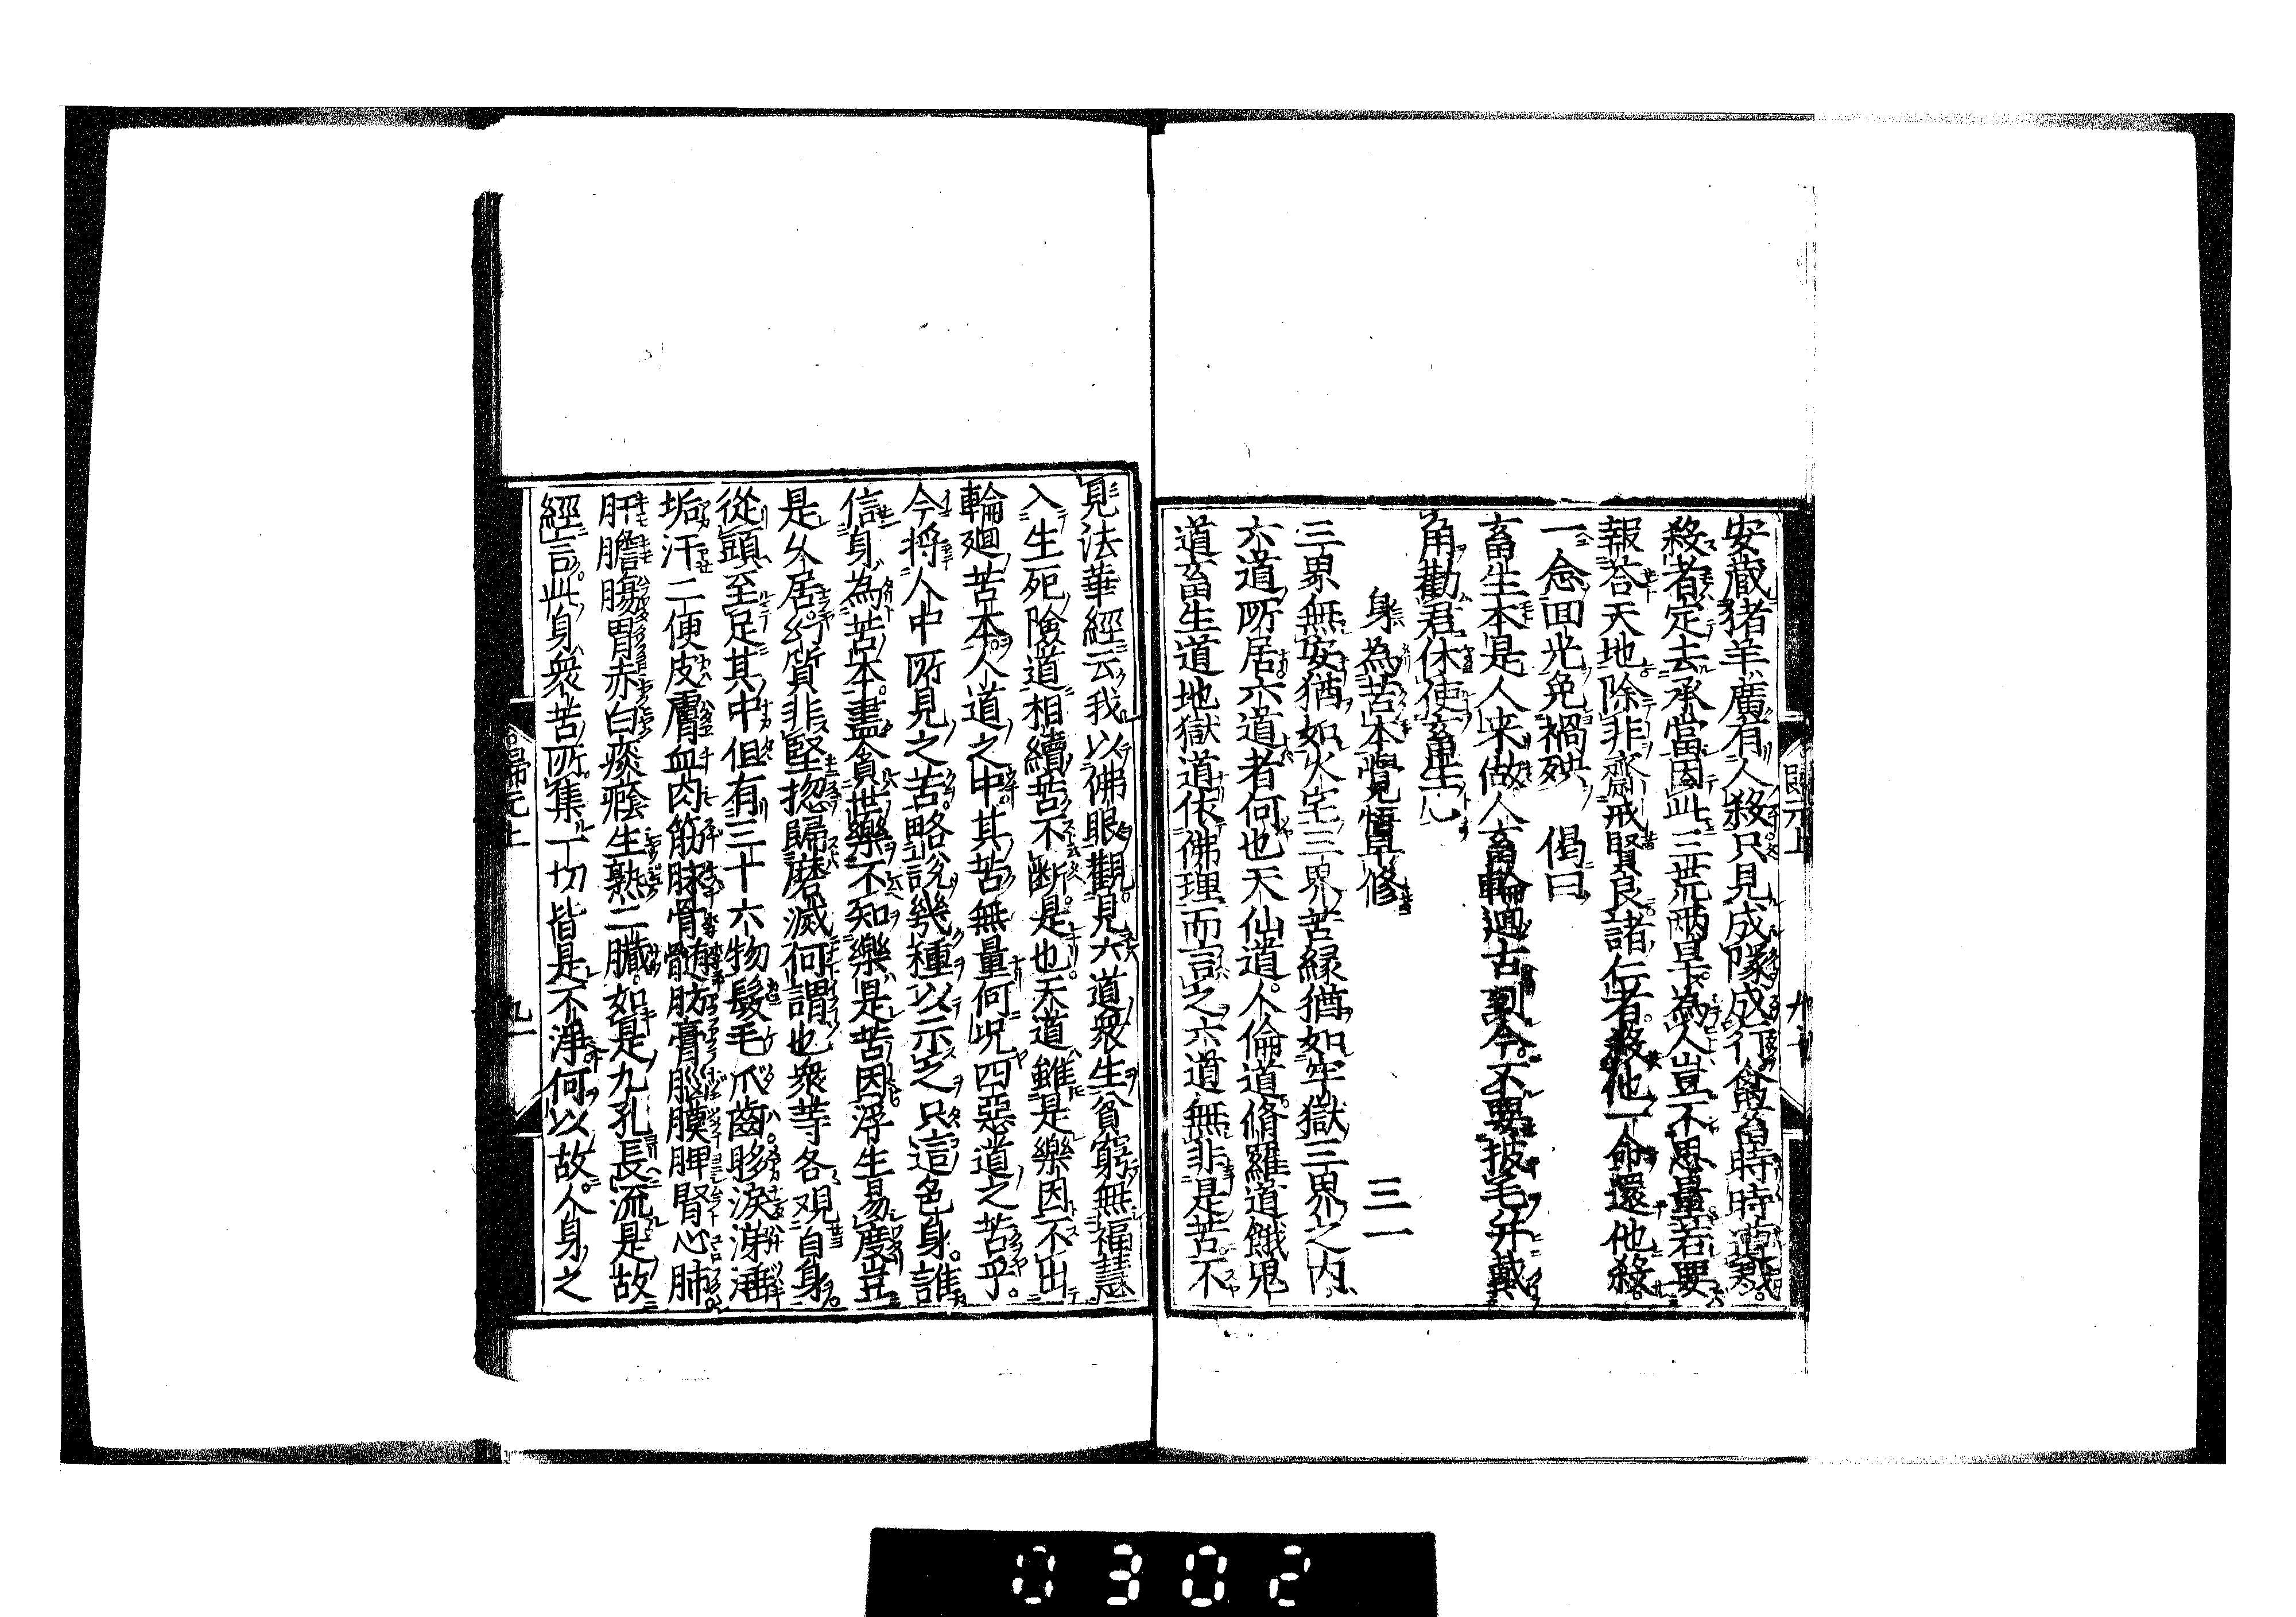 安藏猪羊廣有人殺只見成隊成行龕畜時時遭戮
殺者定去承當因此三荒兩旱為人豈不思量若要
報荅天地除非齋戒賢良諸仁者殺他一命還他殺
一念回光免禍殃　偈曰
畜生本是人来做人畜輪廻古到今不要披毛并戴
角勸君休使畜生心
身為苦本覺悟早修　三一
三界無安猶如火宅三界苦縁猶如牢獄三界之内
六道所居六道者何也天仙道人倫道脩羅道餓鬼
道畜生道地獄道依佛理而言之六道無非是苦不
見法華經云我以佛眼觀見六道衆生貧窮無福慧
入生死險道相續苦不断是也天道雖是樂因不出
輪廻苦本人道之中其苦無量何况四惡道之苦乎
今将人中所見之苦略說幾種以示之只這色身誰
信身為苦本盡貪世樂不知樂是苦因浮生易度豈
是久居幻質非堅揔歸磨滅何謂也衆等各观自身
從頭至足其中但有三十六物髮毛爪齒眵淚涕唾
垢汗二便皮膚血肉筋脉骨髓肪膏腦膜脾腎心肺
肝膽腸胃赤白痰癊生熟二臟如是九孔長流是故
經言此身衆苦所集一切皆是不淨何以故人身之
歸元上
九一
0302